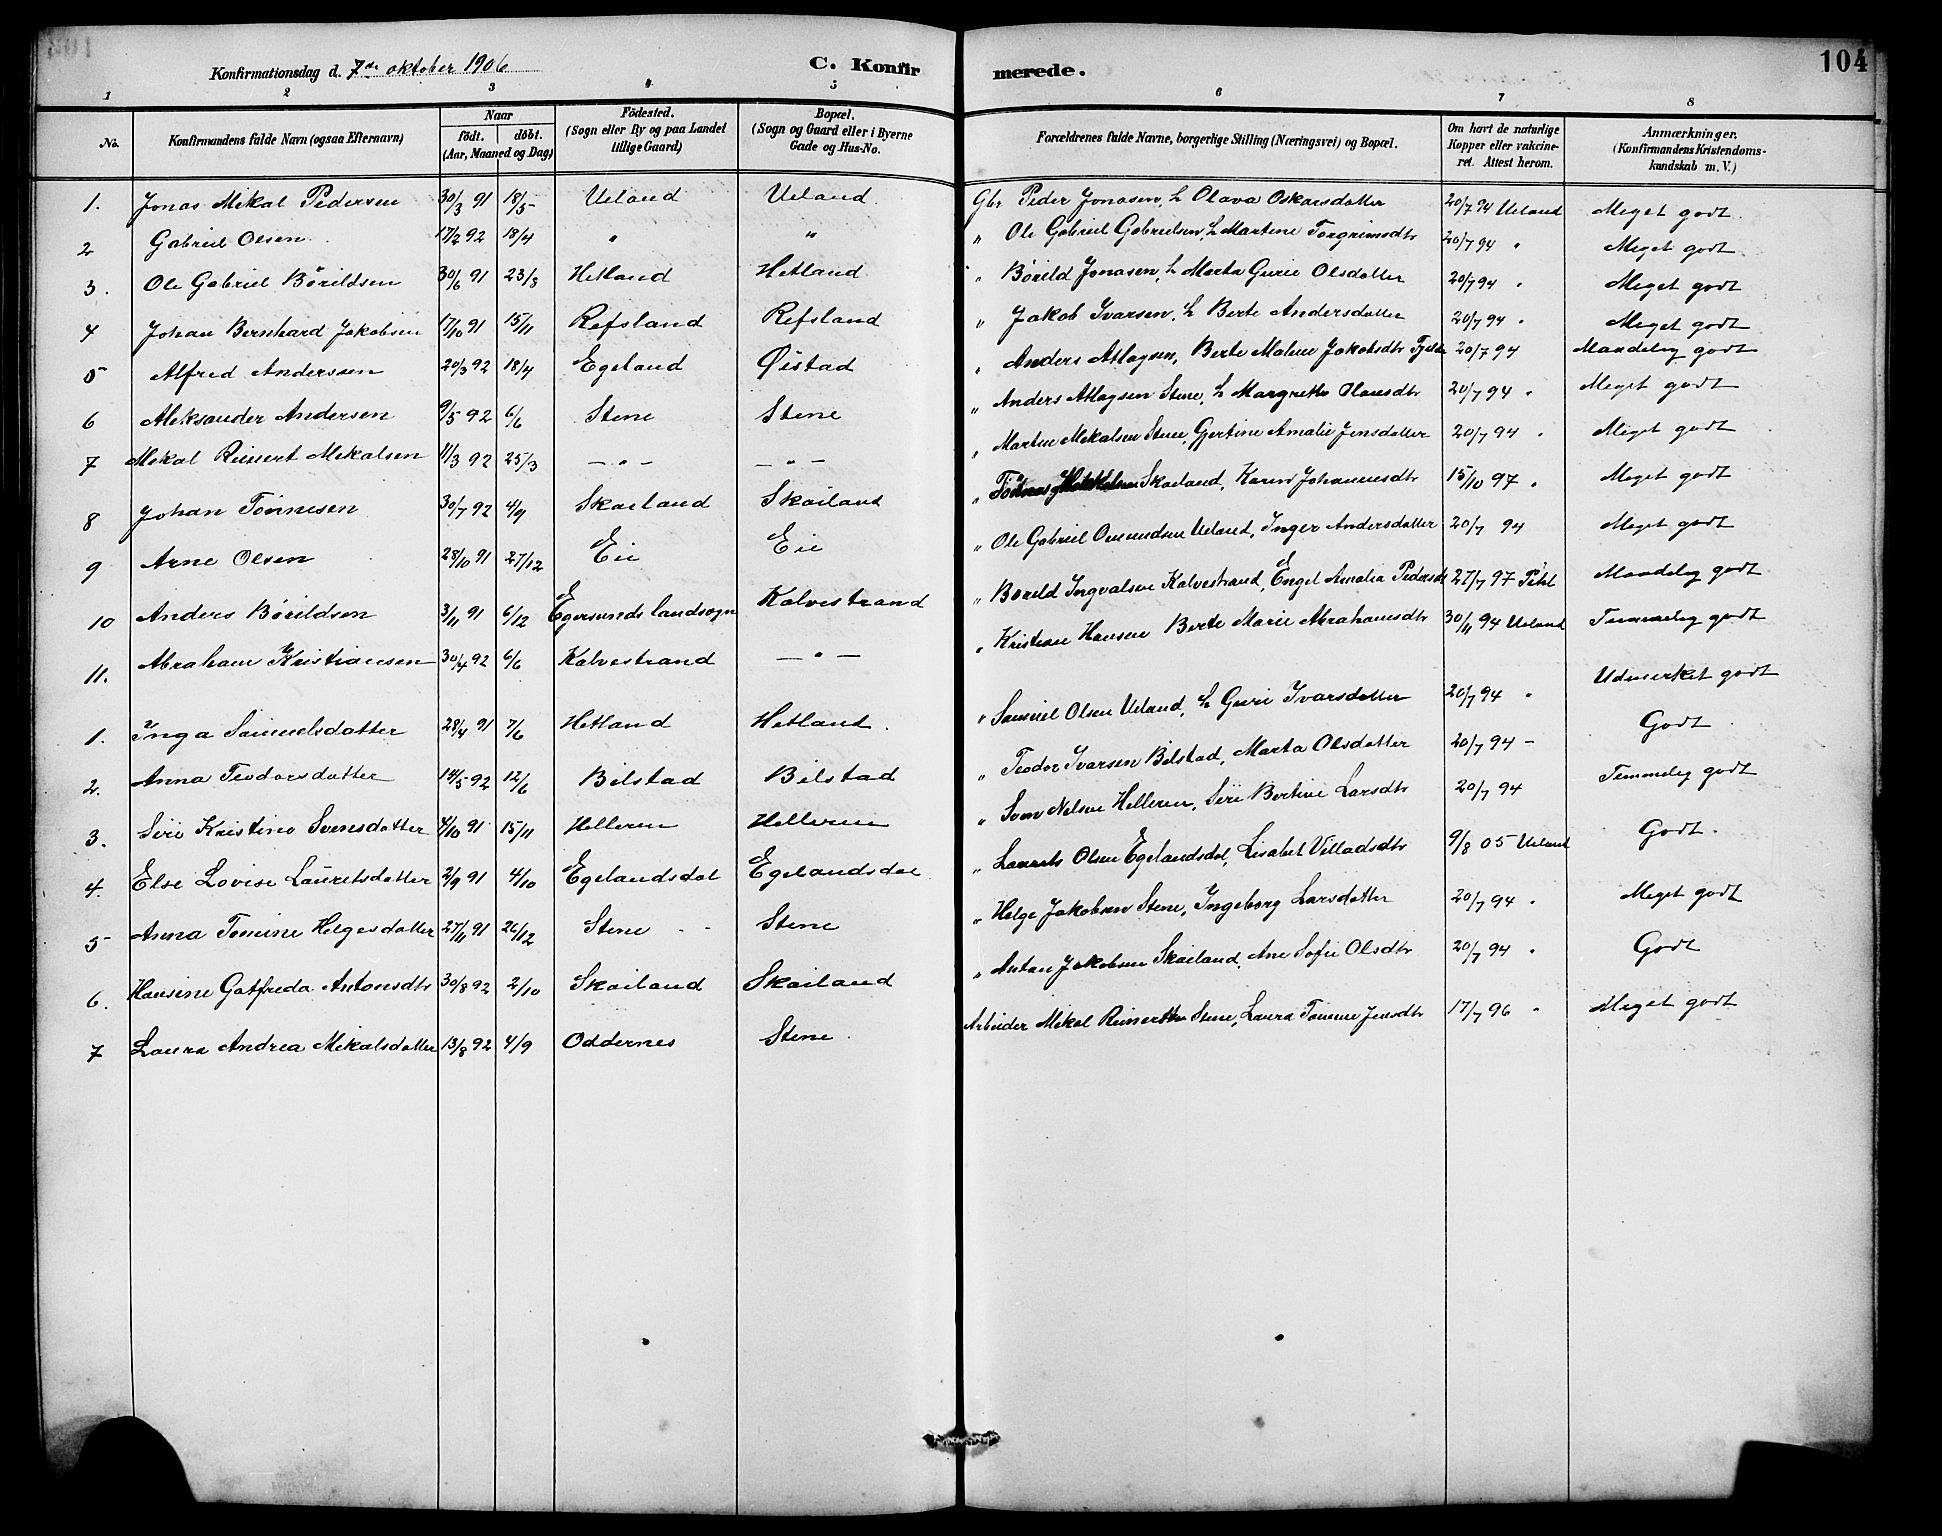 104
Konfirmationsdag d. 7de oktober 1906 C. Konfirmerede.
1 2 3 4 5 6 7 8
No. Konfirmandens fulde Navn (ogsaa Efternavn) Naar födt. döbt. (Aar, Maaned og Dag) Födested. (Sogn eller By og paa Landet tillige Gaard) Bopæl. (Sogn og Gaard eller i Byerne Gade og Hus-No. Forældrenes fulde Navne, borgerlige Stilling (Næringsvei) og Bopæl. Om havt de naturlige Kopper eller vakcineret. Attest herom. Anmærkninger. (Konfirmandens Kristendomskundskab m. V.)
1. Jonas Mikal Pedersen 30/3 91 18/5 Ueland Ueland Gbr Peder Jonasen, h Olava Oskarsdatter 20/7 94 Ueland Meget godt
2 Gabriel Olsen 17/2 92 18/4 " " " Ole Gabriel Gabrielsen, h Martine Torgrimsdtr 20/7 94 " Meget godt
3. Ole Gabriel Börildsen 30/6 91 23/8 Hetland Hetland " Börild Jonasen, h Marta Gurie Olsdatter 20/7 94 " Meget godt
4 Johan Bernhard Jakobsen 17/10 91 15/11 Refsland Refsland " Jakob Ivarsen, h Berte Andersdatter 20/7 94 " Meget godt
5 Alfred Andersen 20/3 92 18/4 Egeland Øistad " Anders Atlagsen, Berte Malene Jakobsdtr 20/7 94 Maadelig godt
6 Aleksander Andersen 9/5 92 6/6 Stene Stene " Anders Atlagsen Stene, h Margrethe Olausdtr 20/7 94 " Meget godt
7 Mikal Reinert Mikalsen 11/3 92 25/3 – " – – " – " Martin Mikalsen Stene, Gjertine Amalie Jensdatter 20/7 94 " Meget godt
8 Johan Tönnesen 30/7 92 4/9 Skailand Skailand " Tönnes Skailand, Karen Johannesdtr 15/10 97 " Meget godt
9 Arne Olsen 28/10 91 27/12 Eie Eie " Ole Gabriel Omundsen Ueland, Inger Andersdatter 20/7 94 Meget godt
10 Anders Börildsen 3/11 91 6/12 Egersunds landsogn Kalvestrand " Börild Ingvalsen Kalvestrand, Engel Amalia Pedersdtr 27/7 97 Maadelig godt
11. Abraham Kristiansen 30/4 92 6/6 Kalvestrand – " – " Kristian Hansen Berte Marie Abrahamsdtr 30/11 94 Ueland Temmelig godt
1. Inga Samuelsdatter 28/4 91 7/6 Hetland Hetland " Samuel Olsen Ueland, h Guri Ivarsdatter 20/7 94 " Udmerket godt
2. Anna Teodorsdatter 14/5 92 12/6 Bilstad Bilstad " Teodor Ivarsen Bilstad, Marta Olsdatter 20/7 94 – Godt
3. Siri Kristine Svensdatter 4/10 91 15/11 Helleren Helleren " Sven Nelsen Helleren, Siri Bertine Larsdtr 20/7 94 Temmelig godt
4. Else Lovise Lauritsdatter 2/9 91 4/10 Egelandsdal Egelandsdal " Laurits Olsen Egelandsdal, Lisabet Villadsdtr 9/8 05 Ueland Godt.
5 Anna Tomine Helgesdatter 27/11 91 26/12 Stene Stene " Helge Jakobsen Stene, Ingeborg Larsdatter 20/7 94 " Meget godt
6. Hansine Gotfreda Antonsdtr 30/8 92 2/10 Skailand Skailand " Anton Jakobsen Skailand, Ane Sofie Olsdtr 20/7 94 " Godt
7 Laura Andrea Mikalsdatter 13/8 92 4/9 Oddernes Stene Arbeider Mikal Reinertsen Stene, Laura Tomine Jensdtr 17/7 96 " Meget godt